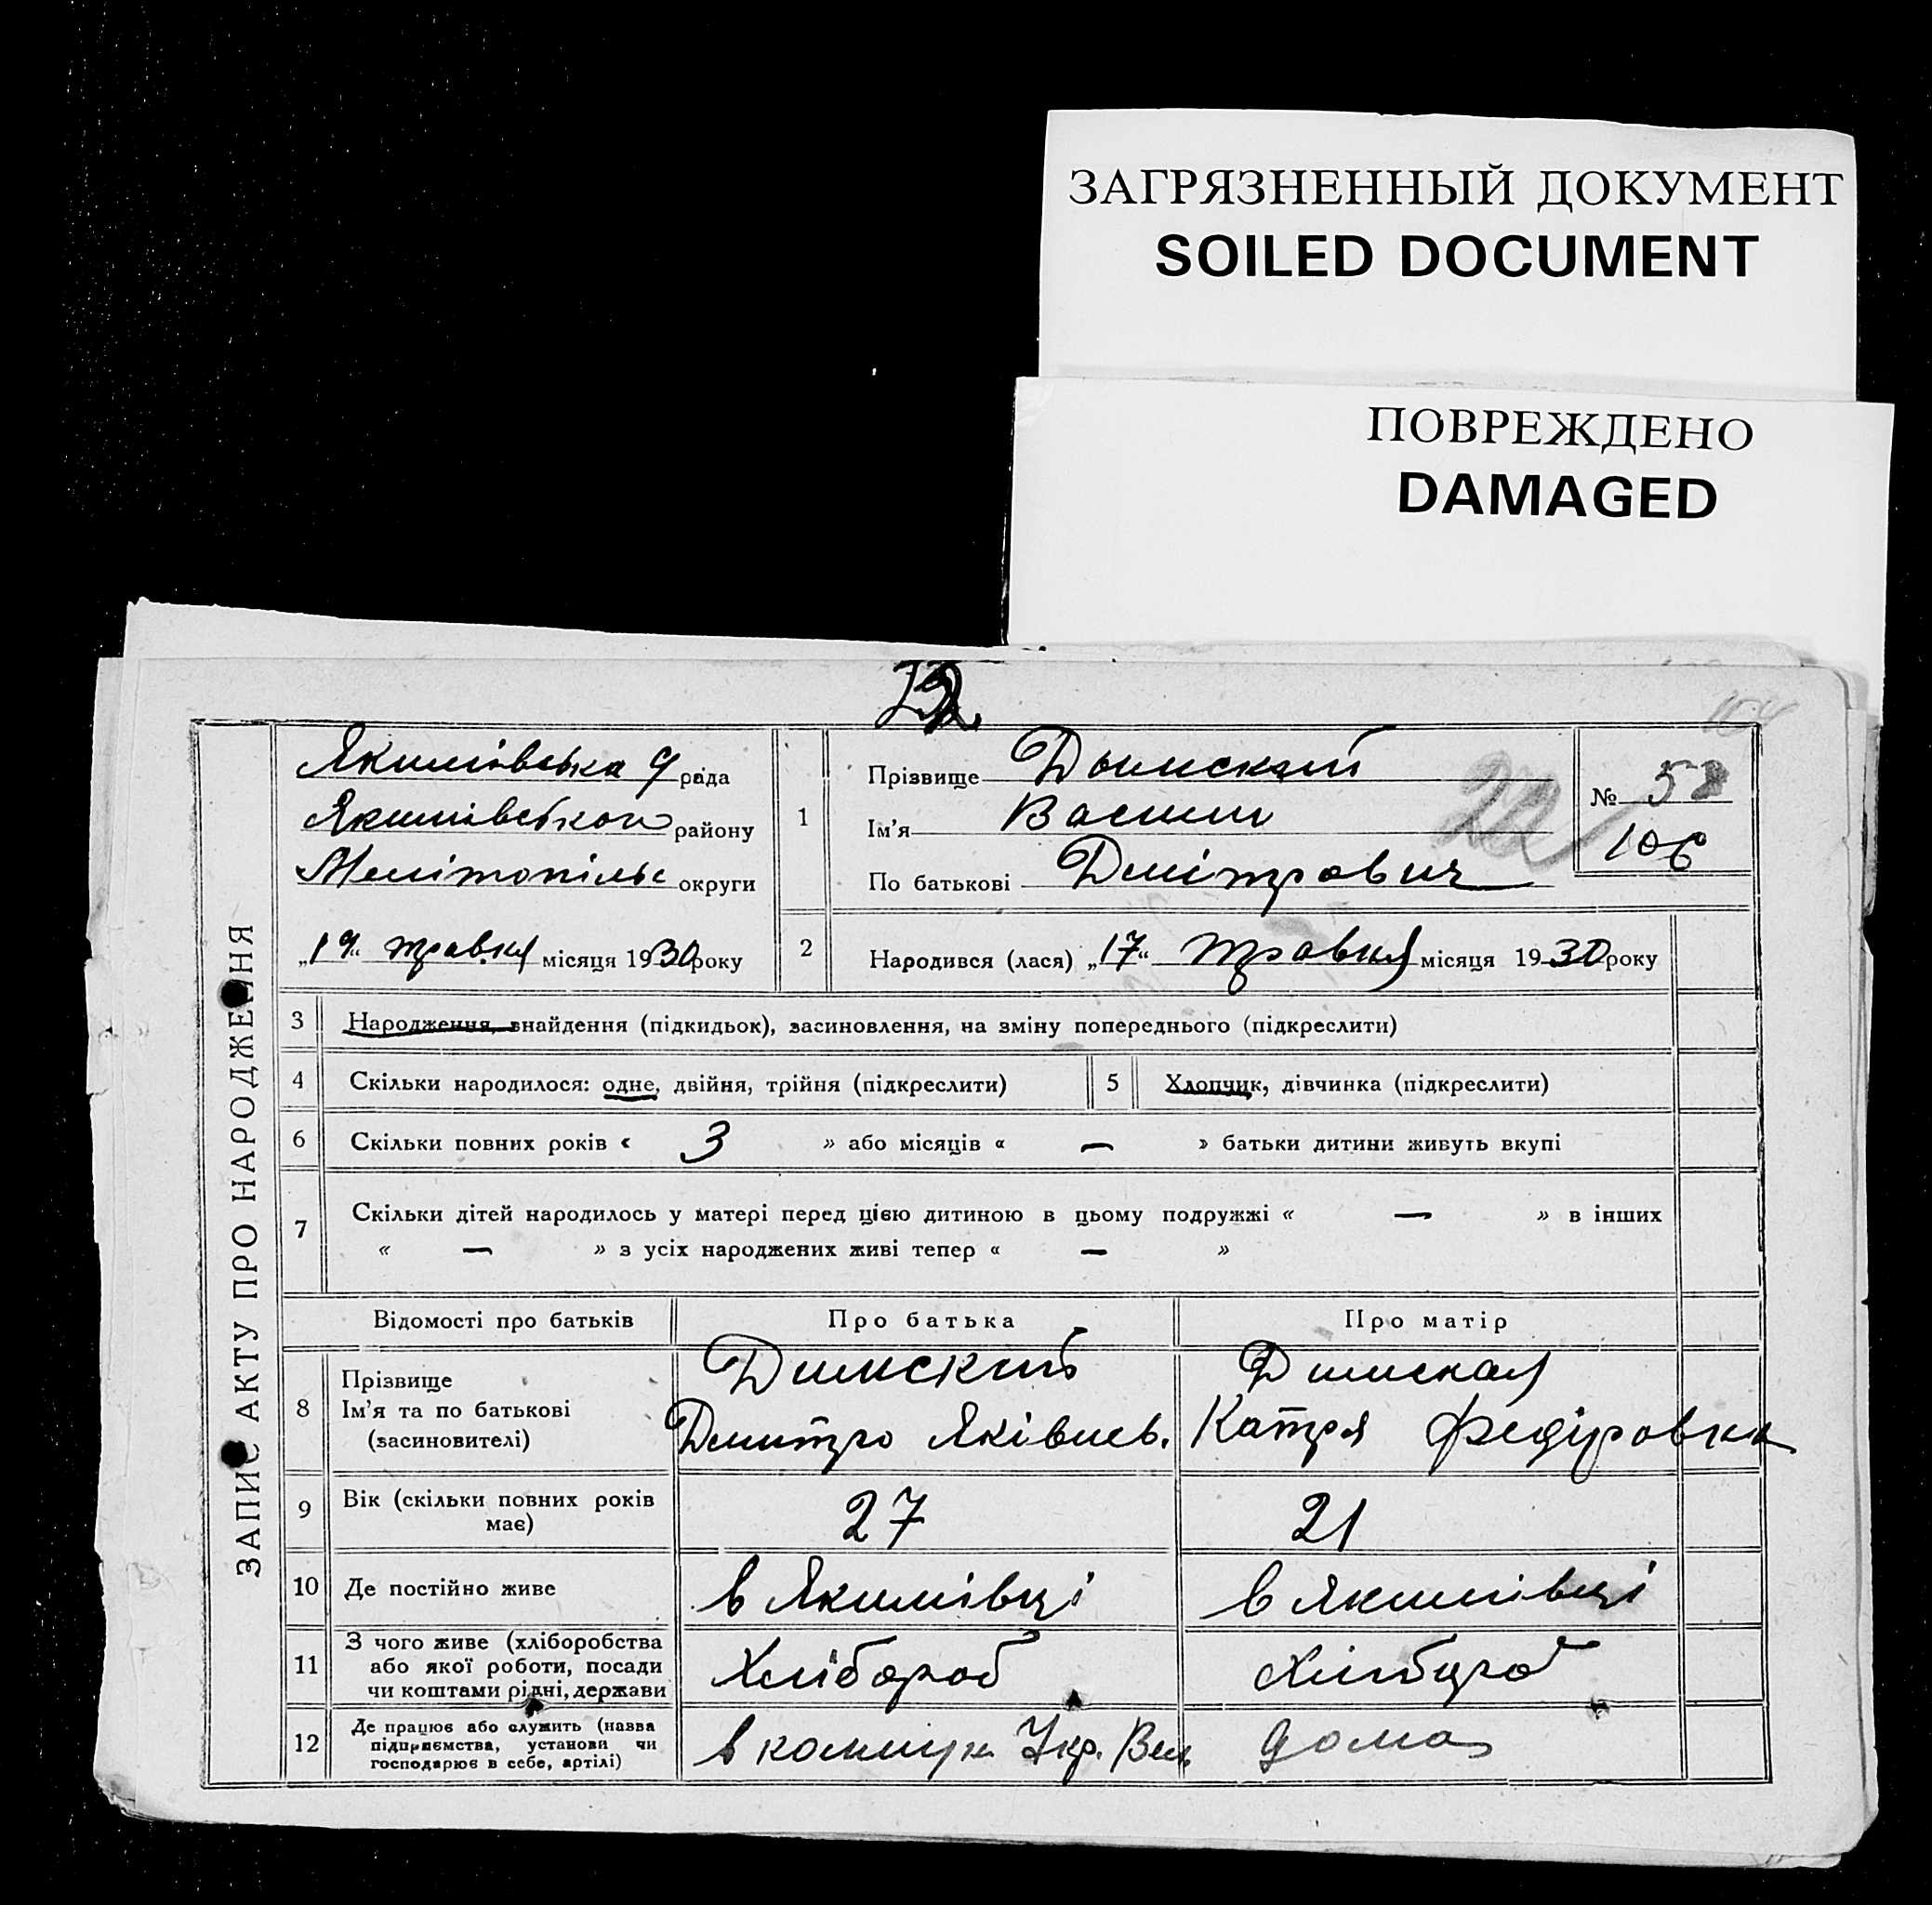 ЗАГРЯЗНЕННЫЙ ДОКУМЕНТ
SOILED DOCUMENT
ПОВРЕЖДЕНО
DAMAGED
ЗАПИС АКТУ ПРО НАРОДЖЕННЯ
Якимівська рада
Якимівського району
Мелітопільс округи
„19“ травня місяця 1930 року
1
Прізвище Дымский
Ім'я Васили
По батькові Дмітрович
22
№ 58
106
2 Народився (лася) „17“ травня місяця 1930 року
3 Народження, знайдення (підкидьок), засиновлення, на зміну попереднього (підкреслити)
4 Скільки народилося: одне, двійня, трійня (підкреслити) 5 Хлопчик, дівчинка (підкреслити)
6 Скільки повних років « 3 » або місяців « — » батьки дитини живуть вкупі
7 Скільки дітей народилось у матері перед цією дитиною в цьому подружжі « — » в інших
« — » з усіх народжених живі тепер « — »
Відомості про батьків Про батька Про матір
8 Прізвище
Ім'я та по батькові
(засиновителі)
Димский Димская
Дмитро Яківлев. Катря Федіровна
9 Вік (скільки повних років
має)
27 21
10 Де постійно живе в Якимівці в Якимівці
11 З чого живе (хліборобства
або якої роботи, посади
чи коштами рідні, держави
Хлібороб Хлібороб
12 Де працює або служить (назва
підприємства, установи чи
господарює в себе, артілі)
в комун. Укр. Вел дома